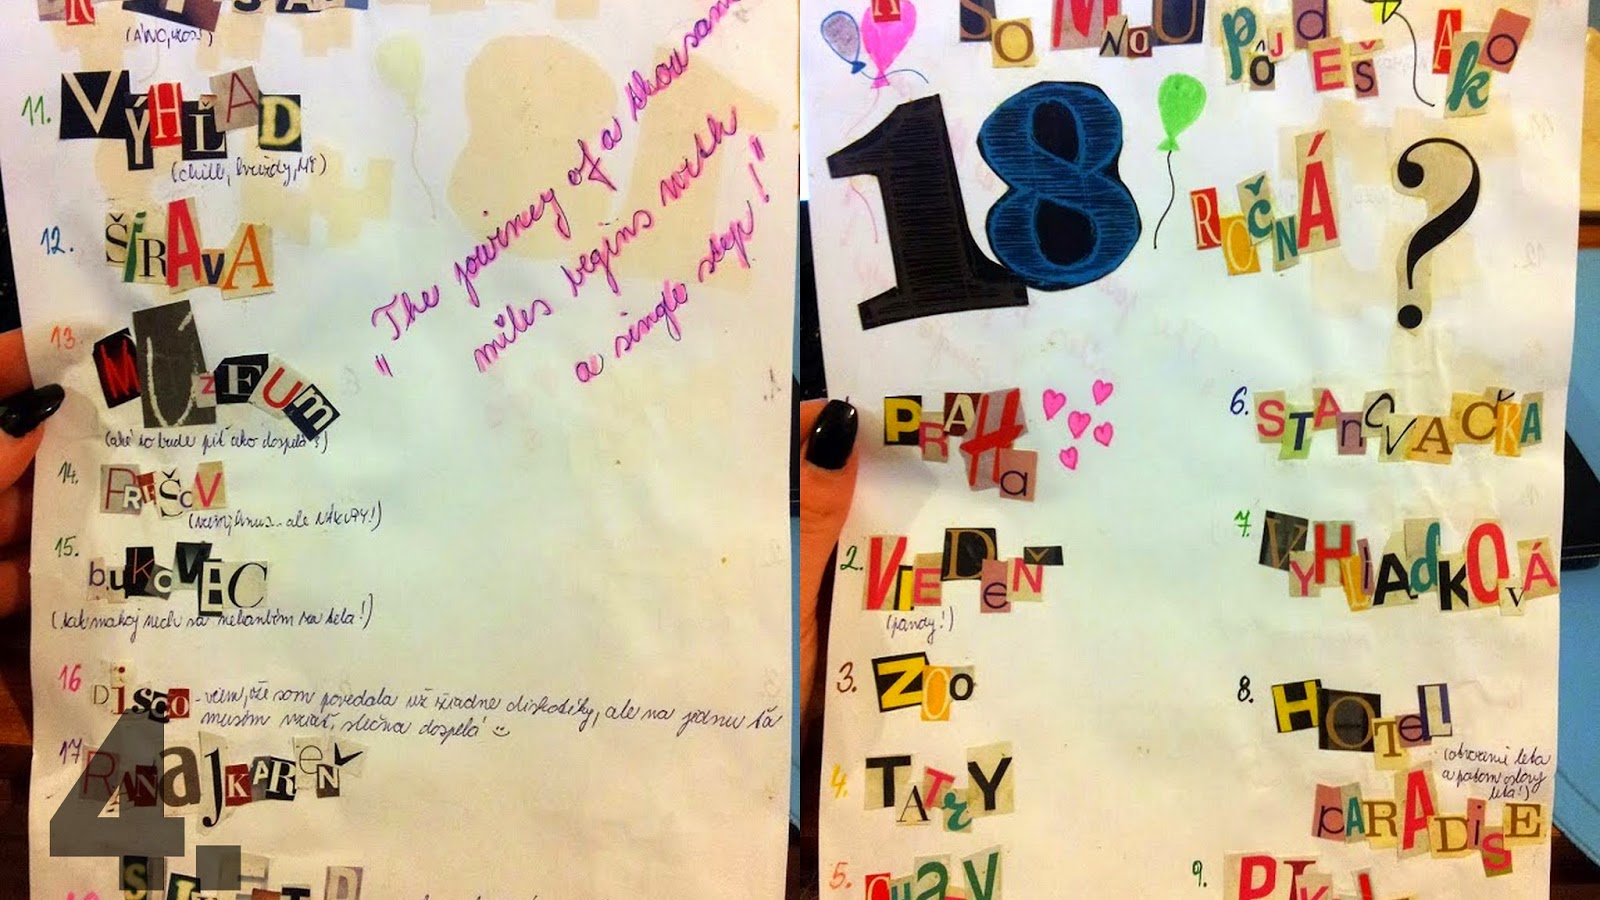 (ÁNO, kos!)
11. VÝHĽAD
(chill, hviezdy, MY)
12. ŠÍRAVA
13. MÚZEUM
(aké to bude piť ako dospelá?)
14. PREŠOV
ale NÁKUPY!)
15. buKOVEC
(tak makaj nech sa nehanbím za teba!)
16 DISCO - viem, že som povedala už žiadne diskotéky, ale na jednu ťa
musím vziať, slečna dospelá
17 RANAJKAREŇ
"The journey of a thousand
miles begins with
a single step!"
4.
SO MNOU PÔJDEŠ AKO
18 ROČNÁ ?
PRAHA
2. VIEDEŇ
(pandy!)
3. ZOO
4. TATRY
5.
6. STANOVAČKA
7. VYHLIADKOVÁ
8. HOTEL
(otvorenie leta
a potom oslavy
leta!)
PARADISE
9.